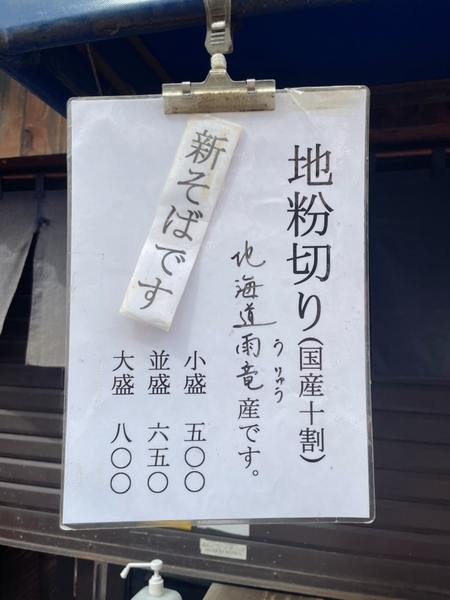 地粉切り(国産十割)
うりゅう
北海道雨竜産です。
新そばです
小盛 五〇〇
並盛 六五〇
大盛 八〇〇